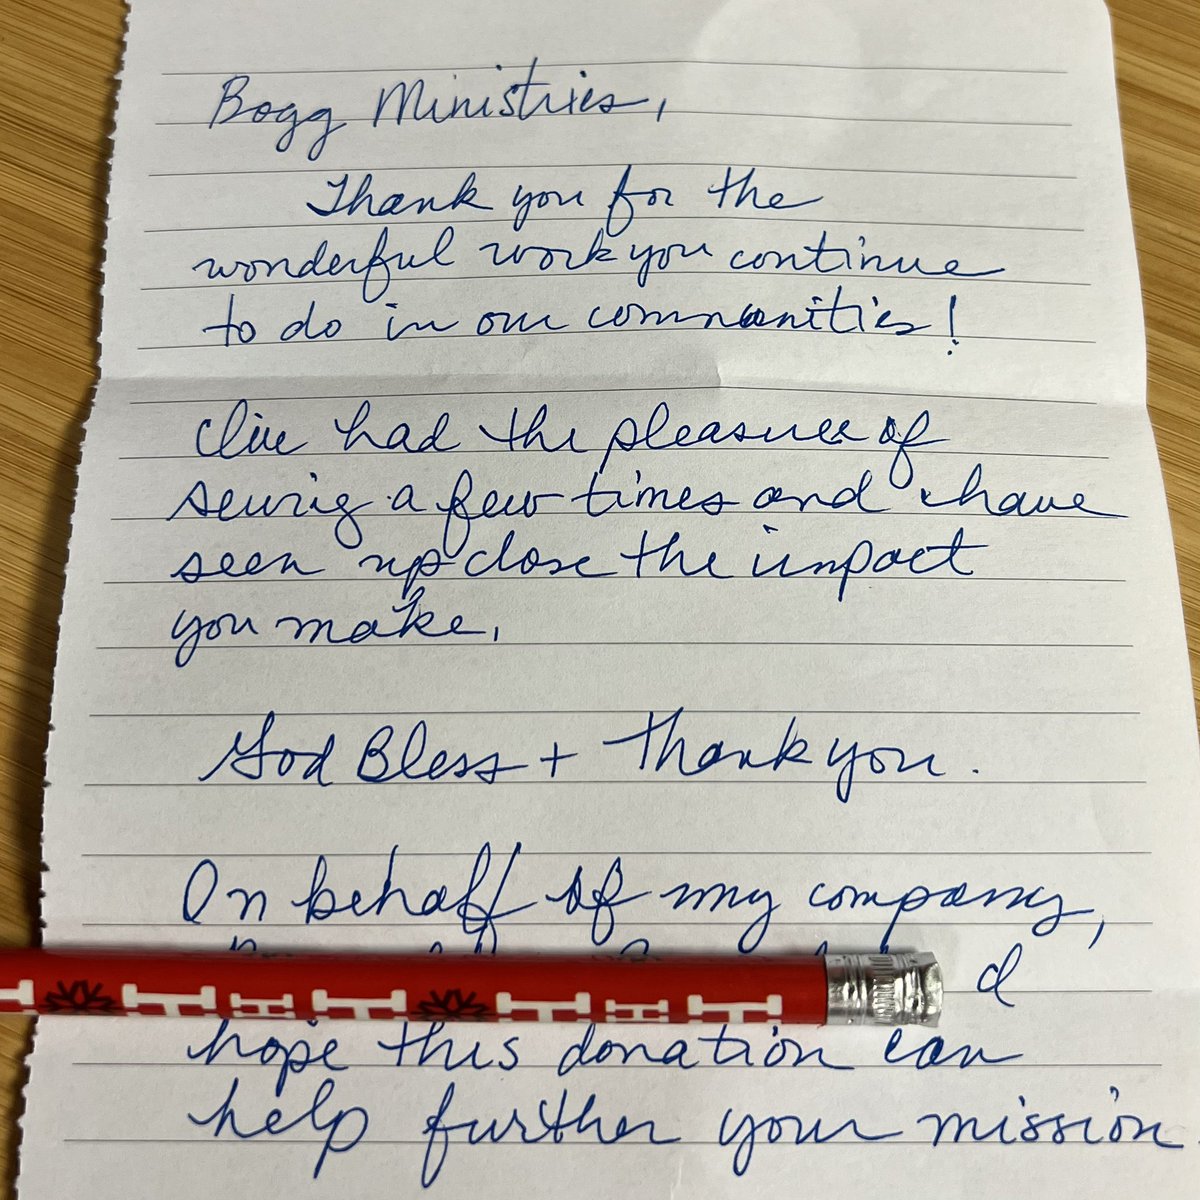 Bogg Ministries,
Thank you for the
wonderful work you continue
to do in our communities!
I've had the pleasure of
serving a few times and I have
seen up close the impact
you make.
God Bless + Thank you.
On behalf of my company,
hope this donation can
help further your mission